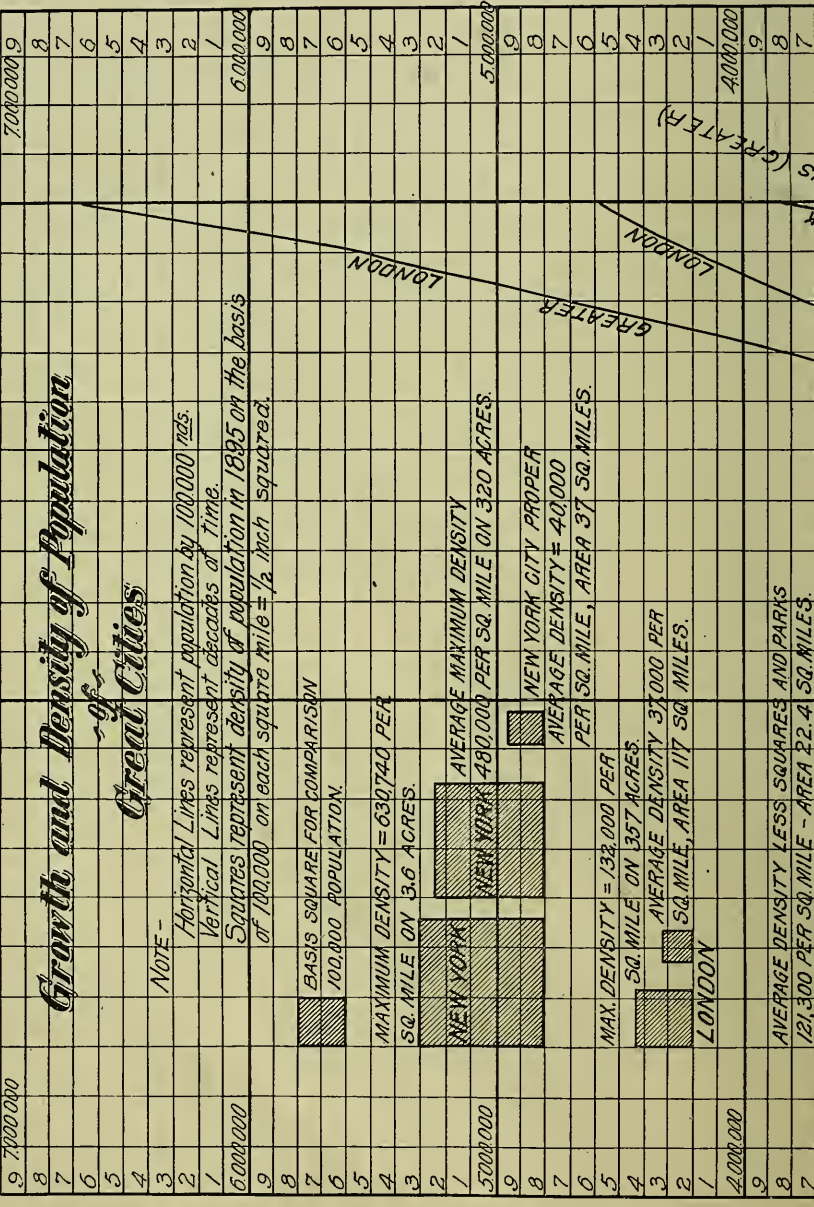 Growth and Density of Population
of
Great Cities
NOTE-
Horizontal Lines represent population by 100.000 nds.
Vertical Lines represent decades of time.
Squares represent density of population in 1895 on the basis
of 100,000 on each square mile = 1/2 inch squared.
BASIS SQUARE FOR COMPARISON
100,000 POPULATION.
MAXIMUM DENSITY = 630,740 PER
SQ. MILE ON 3.6 ACRES.
NEW YORK
AVERAGE MAXIMUM DENSITY
480,000 PER SQ. MILE ON 320 ACRES.
NEW YORK
NEW YORK CITY PROPER
AVERAGE DENSITY = 40,000
PER SQ. MILE, AREA 37 SQ. MILES.
MAX. DENSITY = 132,000 PER
SQ. MILE ON 357 ACRES.
AVERAGE DENSITY 37,000 PER
SQ. MILE, AREA 117 SQ. MILES.
LONDON
AVERAGE DENSITY LESS SQUARES AND PARKS
121,300 PER SQ. MILE - AREA 22.4 SQ. MILES.
GREATER LONDON
LONDON
S (GREATER)
9 7,000,000
8
7
6
5
4
3
2
1
6,000,000
9
8
7
6
5
4
3
2
1
5,000,000
9
8
7
6
5
4
3
2
1
4,000,000
9
8
7
7,000,000 9
8
7
6
5
4
3
2
1
6,000,000
9
8
7
6
5
4
3
2
1
5,000,000
9
8
7
6
5
4
3
2
1
4,000,000
9
8
7